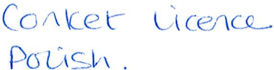 Conket Licence
Polish.